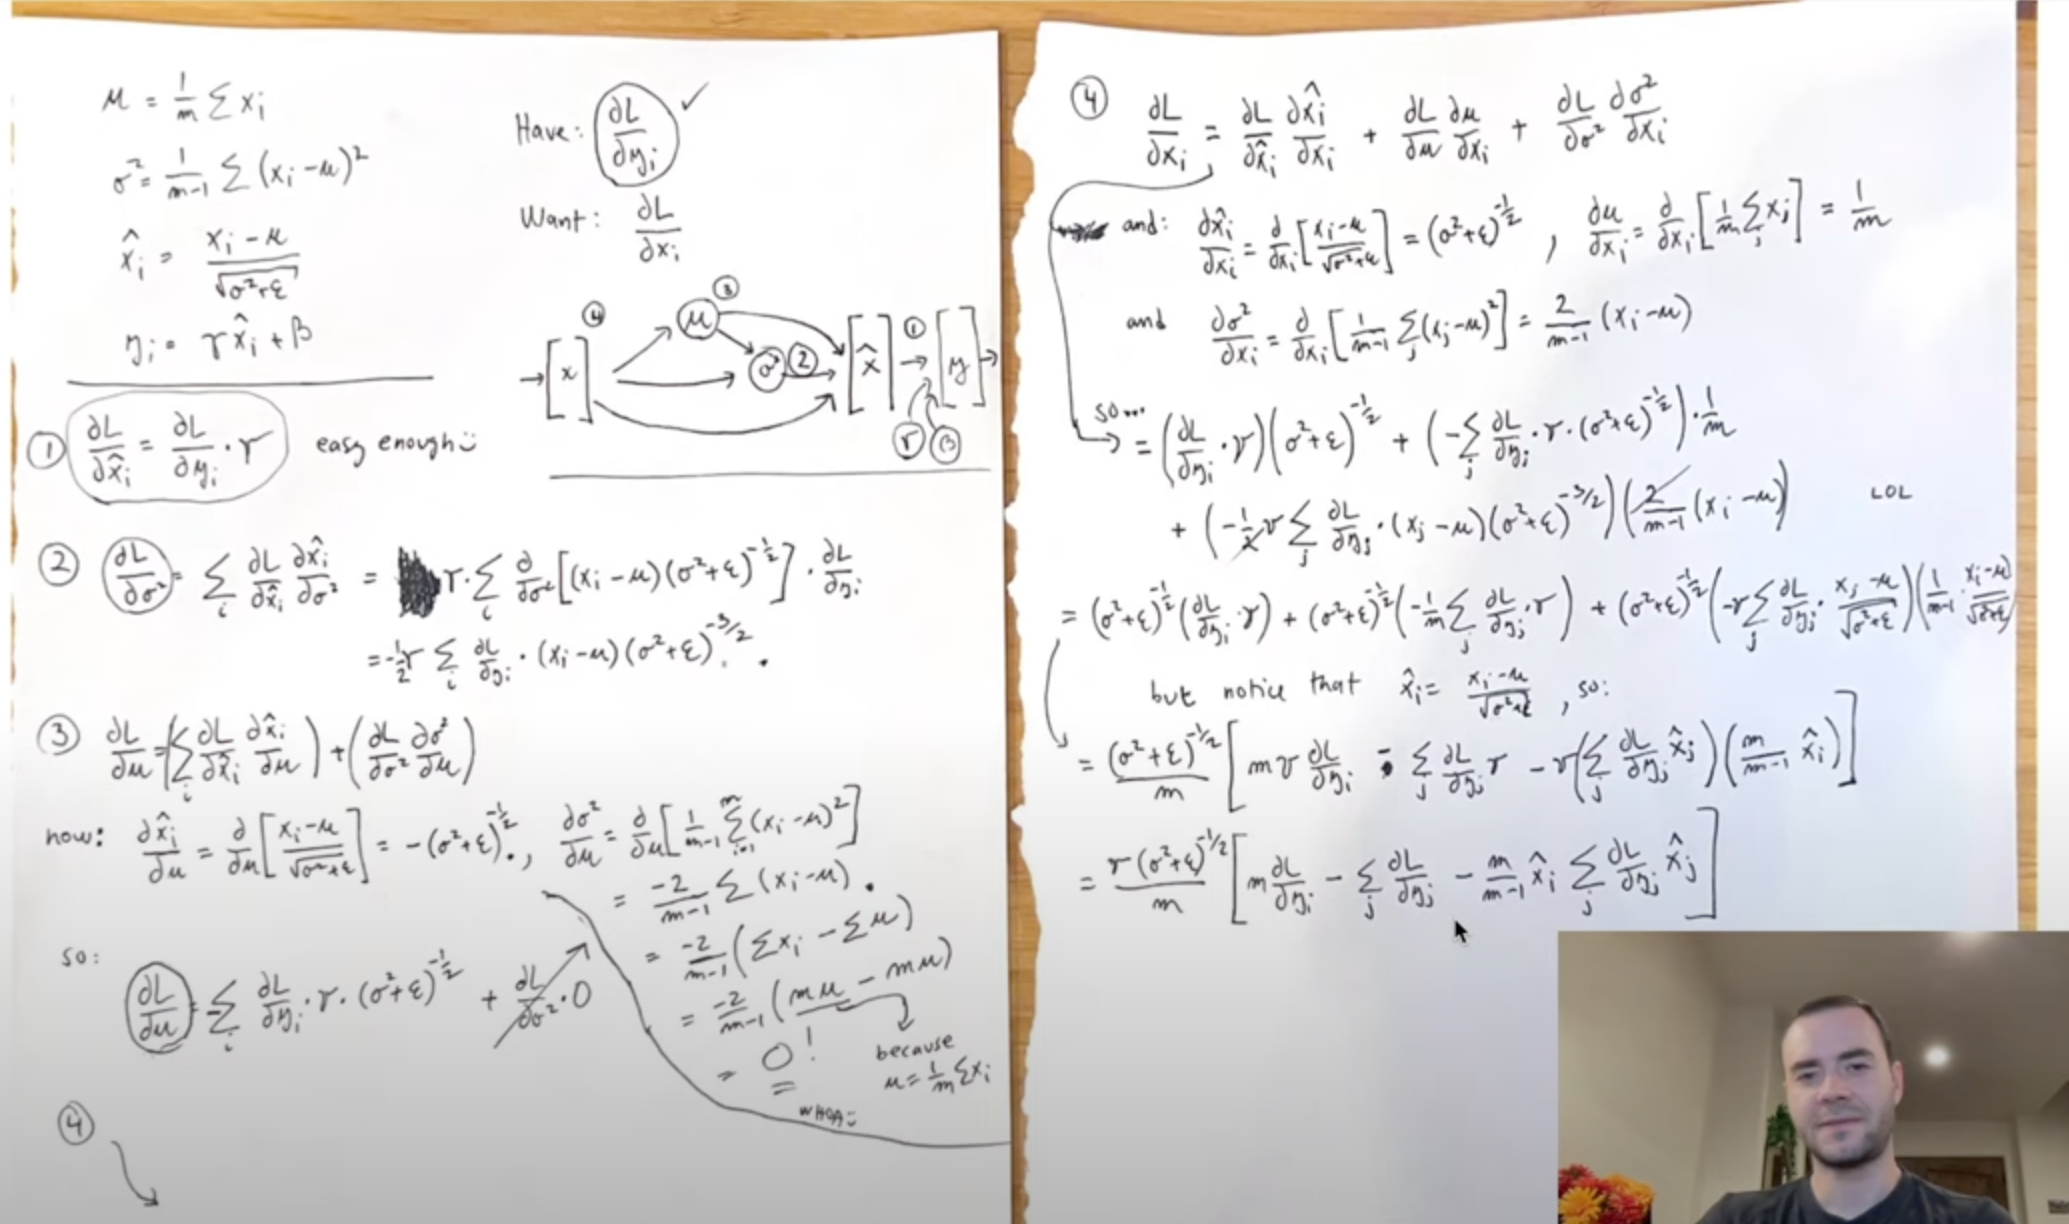 μ = 1/m Σ xᵢ
σ² = 1/(m-1) Σ (xᵢ - μ)²
x̂ᵢ = (xᵢ - μ)/√(σ²+ε)
yᵢ = γx̂ᵢ + β
Have: ∂L/∂yᵢ ✓
Want: ∂L/∂xᵢ
④ μ ③
→ [x] σ² ② [x̂] ① → [y] →
γ β
① ∂L/∂x̂ᵢ = ∂L/∂yᵢ · γ easy enough :)
② ∂L/∂σ² = Σᵢ ∂L/∂x̂ᵢ ∂x̂ᵢ/∂σ² = γ·Σᵢ ∂/∂σ² [(xᵢ - μ)(σ²+ε)^(-1/2)] · ∂L/∂yᵢ
= -1/2 γ Σᵢ ∂L/∂yᵢ · (xᵢ - μ)(σ²+ε)^(-3/2).
③ ∂L/∂μ = (Σᵢ ∂L/∂x̂ᵢ ∂x̂ᵢ/∂μ) + (∂L/∂σ² ∂σ²/∂μ)
now: ∂x̂ᵢ/∂μ = ∂/∂μ [(xᵢ-μ)/√(σ²+ε)] = -(σ²+ε)^(-1/2)., ∂σ²/∂μ = ∂/∂μ [1/(m-1) Σᵢ₌₁ᵐ (xᵢ - μ)²]
= -2/(m-1) Σ (xᵢ - μ).
= -2/(m-1) (Σxᵢ - Σμ)
= -2/(m-1) (mμ - mμ)
= 0!
because
μ = 1/m Σxᵢ
WHOA :)
so:
∂L/∂μ = -Σᵢ ∂L/∂yᵢ · γ · (σ²+ε)^(-1/2) + ∂L/∂σ² · 0
④
④ ∂L/∂xᵢ = ∂L/∂x̂ᵢ ∂x̂ᵢ/∂xᵢ + ∂L/∂μ ∂μ/∂xᵢ + ∂L/∂σ² ∂σ²/∂xᵢ
and: ∂x̂ᵢ/∂xᵢ = ∂/∂xᵢ [(xᵢ-μ)/√(σ²+ε)] = (σ²+ε)^(-1/2), ∂μ/∂xᵢ = ∂/∂xᵢ [1/m Σⱼ xⱼ] = 1/m
and ∂σ²/∂xᵢ = ∂/∂xᵢ [1/(m-1) Σⱼ (xⱼ-μ)²] = 2/(m-1) (xᵢ-μ)
so...
= (∂L/∂yᵢ · γ)(σ²+ε)^(-1/2) + (-Σⱼ ∂L/∂yⱼ · γ · (σ²+ε)^(-1/2)) · 1/m
+ (-1/2 γ Σⱼ ∂L/∂yⱼ · (xⱼ - μ)(σ²+ε)^(-3/2)) (2/(m-1) (xᵢ - μ)) LOL
= (σ²+ε)^(-1/2) (∂L/∂yᵢ · γ) + (σ²+ε)^(-1/2) (-1/m Σⱼ ∂L/∂yⱼ · γ) + (σ²+ε)^(-1/2) (-γ Σⱼ ∂L/∂yⱼ · (xⱼ-μ)/√(σ²+ε)) (1/(m-1) · (xᵢ-μ)/√(σ²+ε))
but notice that x̂ᵢ = (xᵢ-μ)/√(σ²+ε), so:
= (σ²+ε)^(-1/2)/m [mγ ∂L/∂yᵢ - Σⱼ ∂L/∂yⱼ γ - γ(Σⱼ ∂L/∂yⱼ x̂ⱼ)(m/(m-1) x̂ᵢ)]
= γ(σ²+ε)^(-1/2)/m [m ∂L/∂yᵢ - Σⱼ ∂L/∂yⱼ - m/(m-1) x̂ᵢ Σⱼ ∂L/∂yⱼ x̂ⱼ]